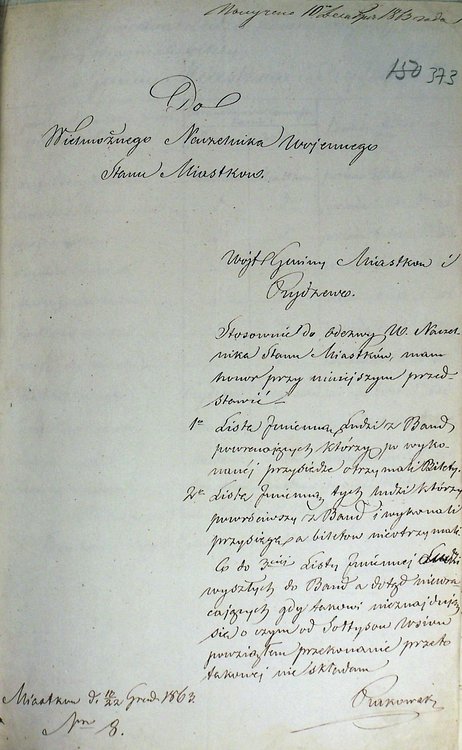 Получено 10 Декабря 1863 года
150 373
Do
Wielmożnego Naczelnika Wojennego
Stanu Miastków.
Wójt Gminy Miastków i
Stosownie do odezwy W. Naczel-
nika Stanu Miastków, mam
honor przy niniejszym przed-
stawić
1o Lista Imienna Ludzi z Band
powracających którzy po wyko-
nanej przysiędze otrzymali Bilety.
2o Lista Imienna tych ludzi którzy
powróciwszy z Band i wykonali
przysięgę a biletów nieotrzymali
Co do 3ciej Listy Imiennej Ludzi
wyszłych do Band a dotąd niewra-
cających gdy takowi nieznajdują
się o czym od Sołtysów Wsiów
powziąłem przekonanie przeto
takowej nie składam
Miastków d. 10/22 Grud. 1863.
Nro 8.
Rakowski